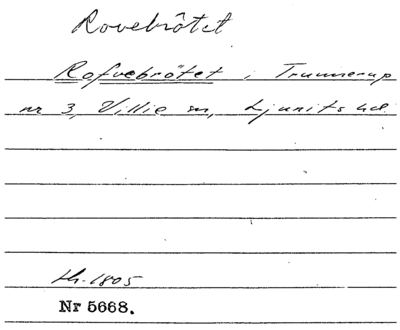 Rovebrötet
Rofvebrötet i Trunnerup
nr 3, Villie sn, Ljunits hd.
th. 1805
Nr 5668.